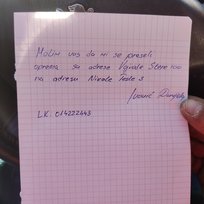 Molim vas da mi se preseli
oprema sa adrese Vojvode Stepe 100
na adresu Nikole Tesle 3
Ivanić
LK. 014222443